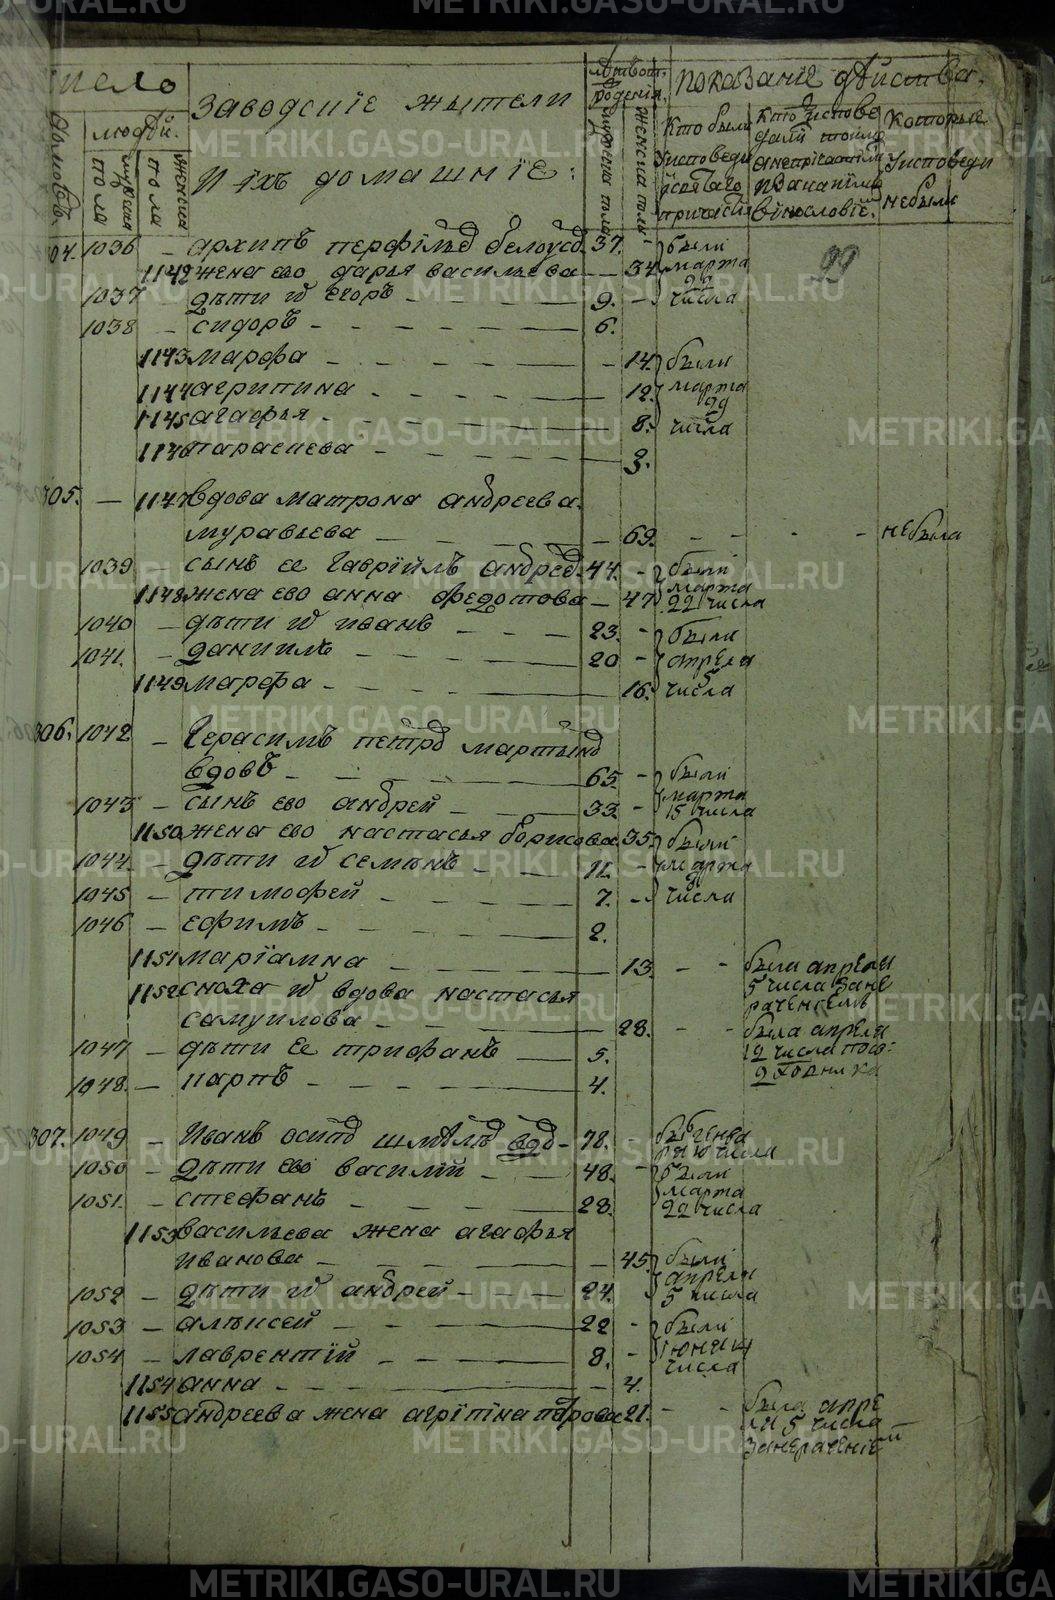 число
лѣт от рождения
показание действа
заводские жытели
и ихъ домашние:
людей.
дымовъ
мужска пола
женска пола
мужска пола
женска пола
кто были у исповеди и святаго причастия
кто исповедали токмо а не причастились и по какимъ винословіе.
которые у исповеди не были
99
1036 — архипъ перфильевъ белоусовъ 37. - были
1142 жена ево дарья васильева — 34 марта
1037 дѣти их егоръ 9. - 22 числа
1038 — сидоръ 6.
1143 марфа — 14. были
1144 агрипина 12. марта
1145 агафья 8. 29 числа
1146 параскева 3.
305. — 1147 вдова матрона андреева
муравьева 69. - - - - не была
1039 — сынъ ее гаврiилъ андреевъ 44. - были
1148 жена ево анна федотова — 47 марта 22 числа
1040 — дѣти их иванъ 23. - были
1041. — данiилъ 20 - апреля
1149 марфа 16. 5 числа
306. 1042 — герасимъ петровъ мартыновъ
вдовъ 65. - были
1043 — сынъ ево андрей 33. - марта 15 числа
1150 жена ево настасья борисова 35. были
1044. — дѣти их семенъ 11. - марта
1045 — тимофей 7. - числа
1046 — ефимъ 2.
1151 марiамна 13. - - была апреля 5 числа за нерачениемъ
1152 сноха их вдова настасья
самуилова 28. - - была апреля
1047 — дѣти ее трифанъ 5. 12 числа
1048. — карпъ 4.
307. 1049 — иванъ осиповъ шмелевъ вдовъ 78.
1050 — дѣти ево василий 48. - были
1051. — стефанъ 28. марта 22 числа
1153 васильева жена агафья
иванова 45. были
1052 — дѣти их андрей 24. апреля 5 числа
1053 — алексей 22 - были
1054 — лаврентiй 8. - числа
1154 анна 4.
1155 андреева жена агрiпiна петрова 21. - - была апреля 5 числа за нерачениемъ
METRIKI.GASO-URAL.RU